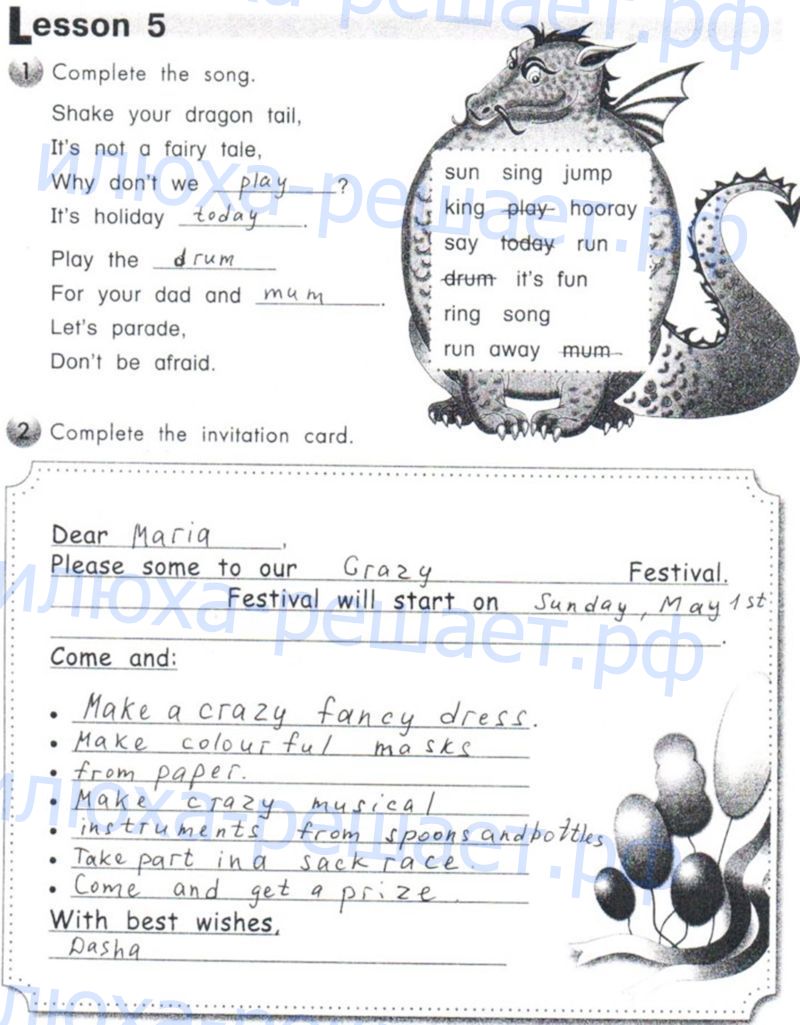 Lesson 5
1 Complete the song.
Shake your dragon tail,
It's not a fairy tale,
Why don't we play?
It's holiday today.
Play the drum
For your dad and mum.
Let's parade,
Don't be afraid.
sun sing jump
king play hooray
say today run
drum it's fun
ring song
run away mum
2 Complete the invitation card.
Dear Maria,
Please some to our Crazy Festival.
Festival will start on Sunday, May 1st
.
Come and:
• Make a crazy fancy dress.
• Make colourful masks
• from paper.
• Make crazy musical
• instruments from spoons and bottles
• Take part in a sack race.
• Come and get a prize.
With best wishes,
Dasha
илюха-решает.рф
илюха-решает.рф
илюха-решает.рф
илюха-решает.рф
илюха-решает.рф